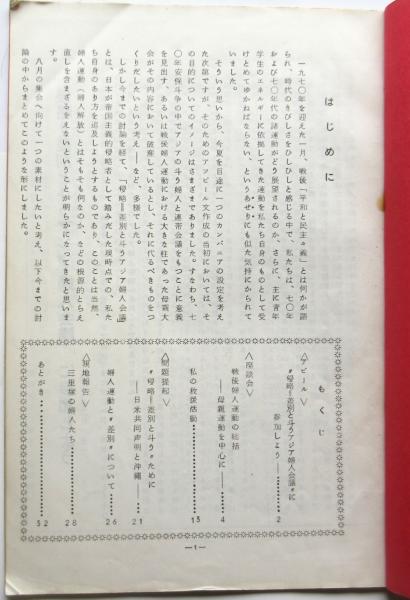 はじめに
一九七〇年を迎えた一月、戦後「平和と民主々義」とは何かが語
られ、時代のきびしさをひしひしと感じる中で、私たちは、七〇年
および七〇年代の諸運動がどう展望されるのか、さらに、主に青年
学生のエネルギーに依拠してきた運動を私たち自身のものとして受
けとめてゆかねばならない、というあせりにも似た気持にかられて
いました。
そういう思いから、今夏を目途に一つのカンパニアの設定を考え
た次第ですが、そのためのアッピール文作成の当初においては、そ
の目的についてのイメージはさまざまでありました。すなわち、七
〇年安保斗争の中でアジアの斗う婦人と連帯会議をもつことに意義
を見出す、あるいは戦後婦人運動における大きな柱であった母親大
会がその内容において破産しているとし、それに代るべきものをつ
くりだしたいという考え――など、多様でした。
しかし今までの討論を経て、「侵略=差別と斗うアジア婦人会議」
とは、日本が帝国主義的侵略者として踏みだした現時点での、私た
ち自身のあり方を追及しようとするものであり、このことは当然、
婦人運動(婦人解放)とはそもそも何なのか、などの根源的とらえ
直しを含まざるをえないということが明らかになってきたと思いま
す。
八月の集会へ向けて一つの素材にしたいと考え、以下今までの討
論の中からまとめてこのような形にしました。
もくじ
〈アピール〉
〝侵略=差別と斗うアジア婦人会議〟に
参加しよう………2
〈座談会〉
戦後婦人運動の総括
――母親運動を中心に――………4
私の救援活動………15
〈問題提起〉
〝侵略=差別と斗う〟ために
――日米共同声明と沖縄――………21
婦人運動と〝差別〟について………26
〈現地報告〉
三里塚の婦人たち………28
あとがき………32
―1―